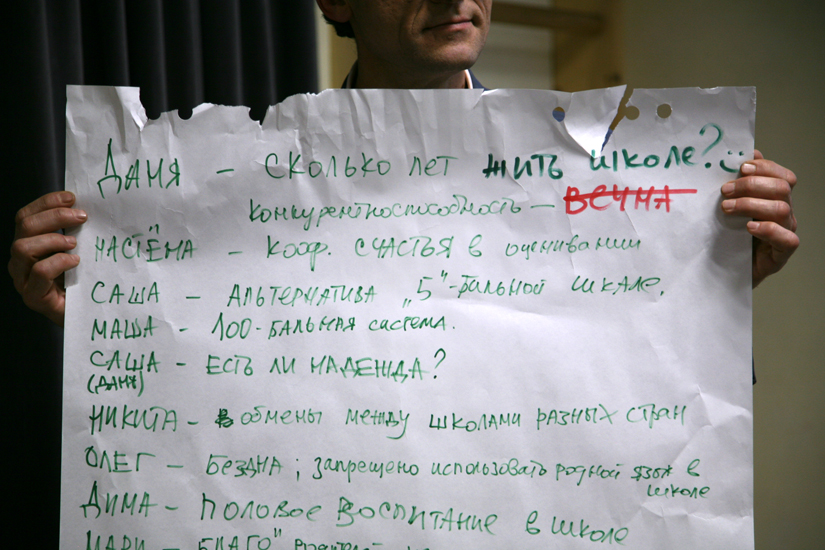 ДАНЯ – СКОЛЬКО ЛЕТ ЖИТЬ ШКОЛЕ? :)
КОНКУРЕНТНОСПОСОБНОСТЬ – ВЕЧНА
НАСТЁМА – КОЭФ. СЧАСТЬЯ В ОЦЕНИВАНИИ
САША – АЛЬТЕРНАТИВА „5"-БАЛЬНОЙ ШКАЛЕ.
МАША – 100-БАЛЬНАЯ СИСТЕМА.
САША – ЕСТЬ ЛИ НАДЕЖДА?
(ДАНЯ)
НИКИТА – ОБМЕНЫ МЕЖДУ ШКОЛАМИ РАЗНЫХ СТРАН
ОЛЕГ – БЕЗДНА; запрещено использовать родной язык в
школе
ДИМА – ПОЛОВОЕ ВОСПИТАНИЕ В ШКОЛЕ
МАРИ – БЛАГО"